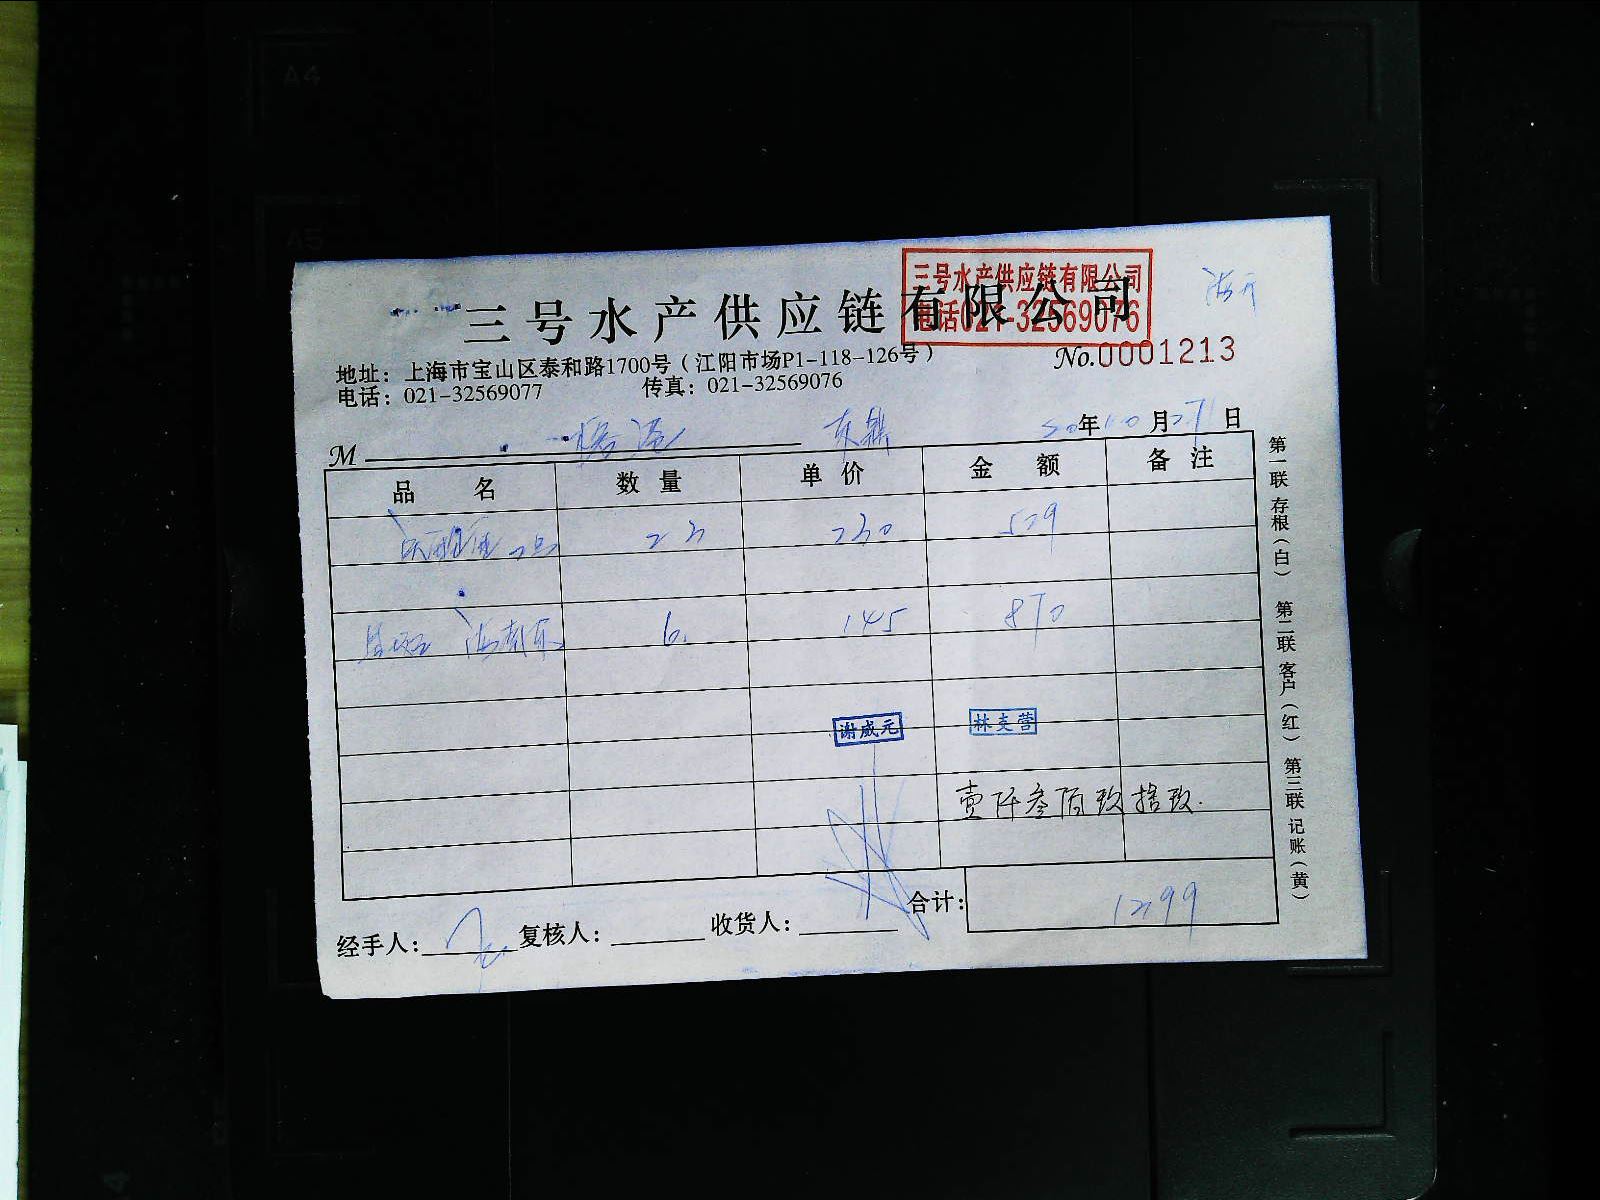 A4
A5
三号水产供应链有限公司
三号水产供应链有限公司
电话021-32569076
No.0001213
地址：上海市宝山区泰和路1700号（江阳市场P1-118-126号）
电话：021-32569077 传真：021-32569076
M
20年10月27日
品名 数量 单价 金额 备注
23 230 529
6 145 870
谢威元 林支营
壹仟叁佰玖拾玖
合计： 1399
经手人： 复核人： 收货人：
第一联 存根（白） 第二联 客户（红） 第三联 记账（黄）